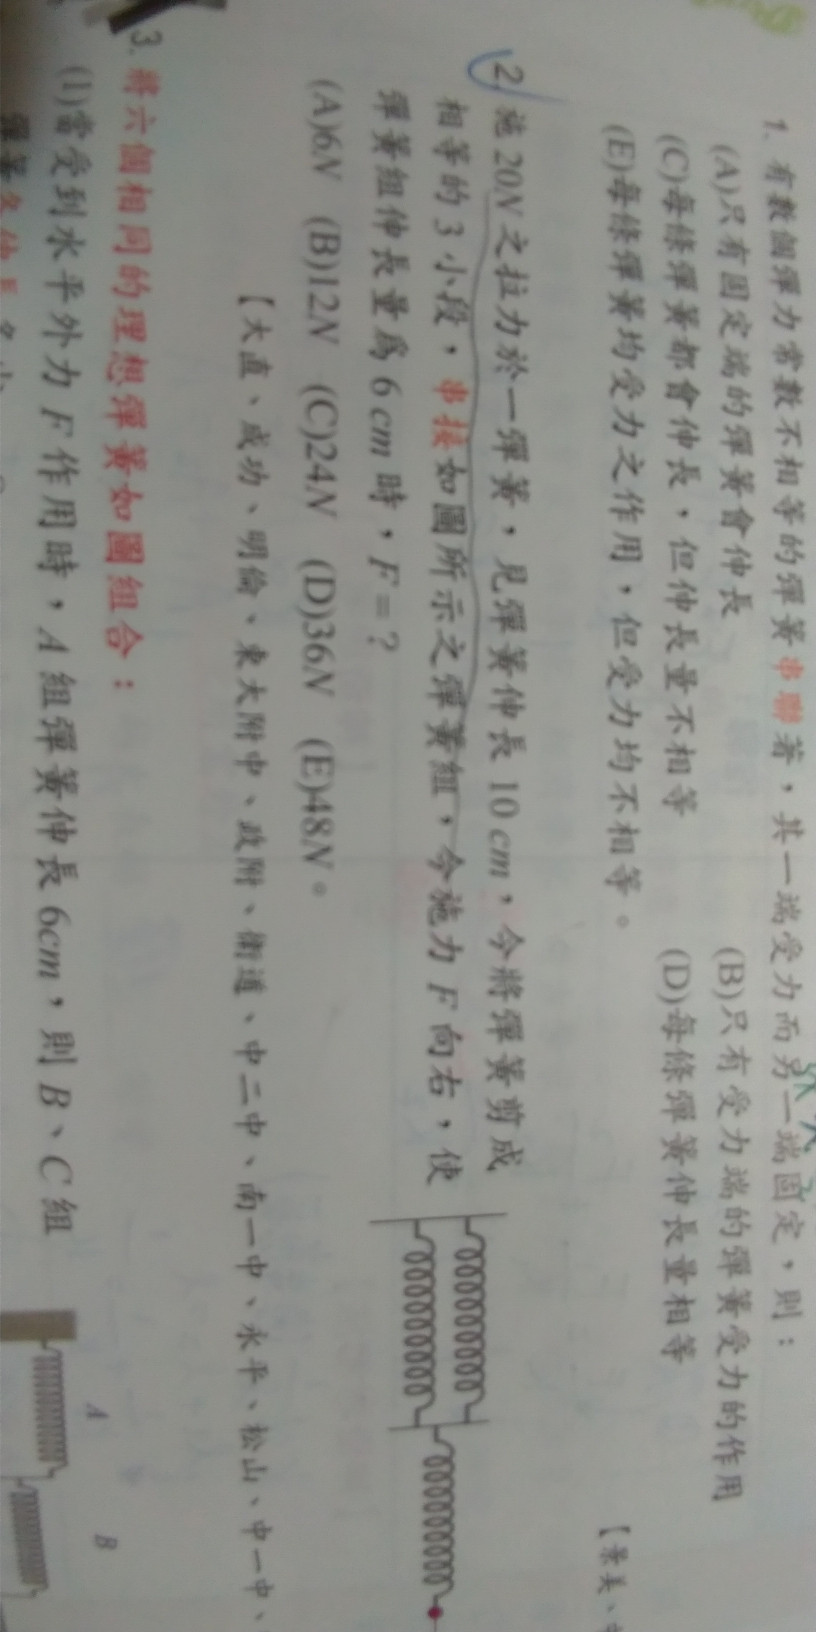 1. 有數個彈力常數不相等的彈簧串聯著，其一端受力而另一端固定，則：
(A)只有固定端的彈簧會伸長 (B)只有受力端的彈簧受力的作用
(C)每條彈簧都會伸長，但伸長量不相等 (D)每條彈簧伸長量相等
(E)每條彈簧均受力之作用，但受力均不相等。
【景美、
2. 施 20N 之拉力於一彈簧，見彈簧伸長 10 cm，今將彈簧剪成
相等的 3 小段，串接如圖所示之彈簧組，今施力 F 向右，使
彈簧組伸長量為 6 cm 時，F＝？
(A)6N (B)12N (C)24N (D)36N (E)48N。
【大直、成功、明倫、東大附中、政附、衛道、中二中、南一中、永平、松山、中一中、
3. 將六個相同的理想彈簧如圖組合：
(1)當受到水平外力 F 作用時，A 組彈簧伸長 6cm，則 B、C 組
A
B